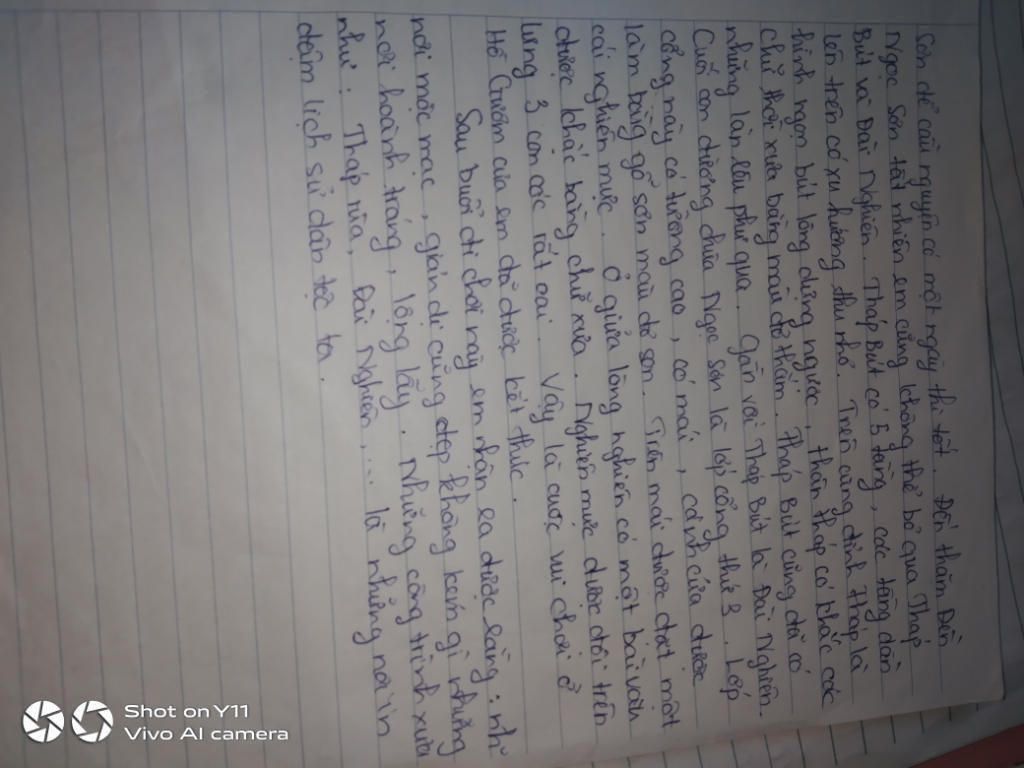 Sơn để cầu nguyện có một ngày thi tốt. Đến thăm Đền
Ngọc Sơn tất nhiên em cũng không thể bỏ qua Tháp
Bút và Đài Nghiên. Tháp Bút có 5 tầng, các tầng dần
lên trên có xu hướng thu nhỏ. Trên cùng đỉnh tháp là
hình ngọn bút lông dựng ngược, thân tháp có khắc các
chữ thời xưa bằng màu đỏ thắm. Tháp Bút cũng đã có
những lần lều phủ qua. Gần với Tháp Bút là Đài Nghiên.
Cuối con đường chùa Ngọc Sơn là lớp cổng thứ 3. Lớp
cổng này có tường cao, có mái, cánh cửa được
làm bằng gỗ sơn màu đỏ son. Trên mái được đặt một
cái nghiên mực. Ở giữa lòng nghiên có một bài văn
được khắc bằng chữ xưa. Nghiên mực được đội trên
lưng 3 con cóc rất oai. Vậy là cuộc vui chơi ở
Hồ Gươm của em đã được kết thúc.
Sau buổi đi chơi này em nhận ra được rằng: những
nơi mộc mạc, giản dị cũng đẹp không kém gì những
nơi hoành tráng, lộng lẫy. Những công trình xưa
như: Tháp rùa, Đài Nghiên,... là những nơi in
đậm lịch sử dân tộc ta.
Shot on Y11
Vivo AI camera